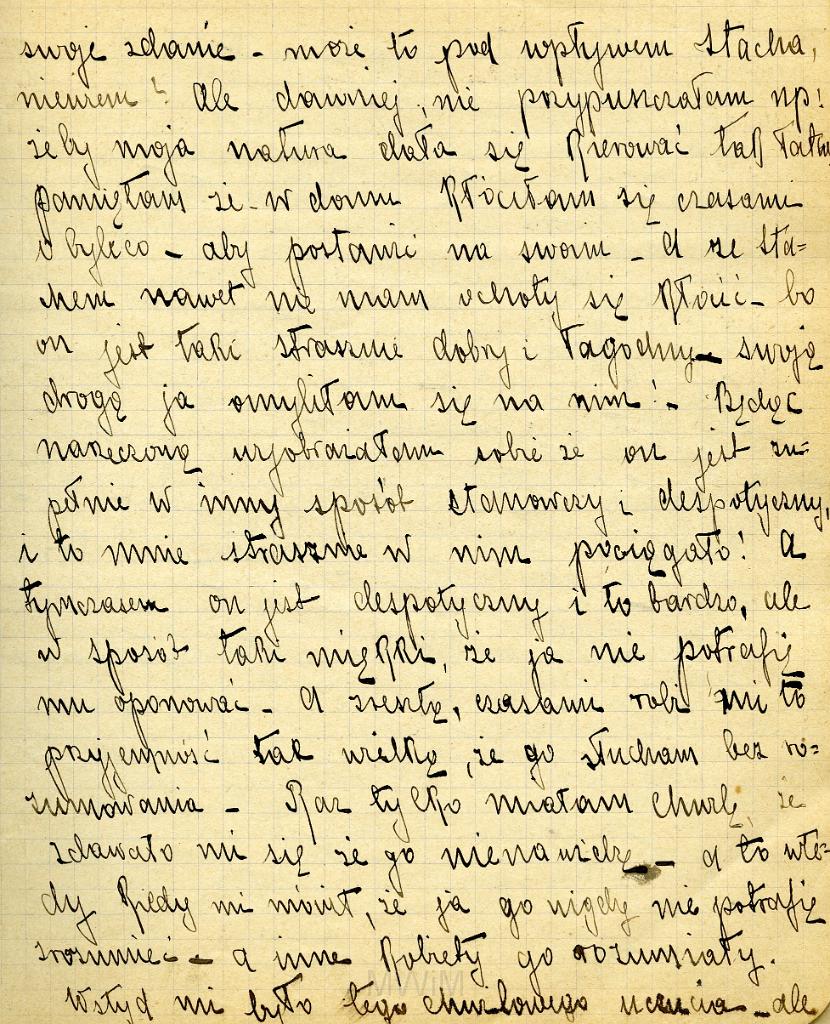 swoje zdanie – może to pod wpływem Stacha,
niewiem? Ale dawniej, nie przypuszczałam np!
żeby moja natura dała się kierować tak łatwo
pamiętam że w domu kłóciłam się czasami
o byleco – aby postawić na swoim – A ze Sta=
chem nawet nie mam ochoty się kłócić – bo
on jest taki strasznie dobry i łagodny – swoją
drogą ja omyliłam się na nim! – Będąc
narzeczoną wyobrażałam sobie że on jest zu-
pełnie w inny sposób stanowczy i despotyczny,
i to mnie strasznie w nim pociągało! A
tymczasem on jest despotyczny i to bardzo, ale
w sposób taki miękki, że ja nie potrafię
mu oponować – A zresztą, czasami robi mi to
przyjemność tak wielką, że go słucham bez ro-
zumowania – Raz tylko miałam chwilę, że
zdawało mi się że go nienawidzę – a to wte-
dy kiedy mi mówił, że ja go nigdy nie potrafię
zrozumieć – a inne kobiety go rozumiały.
Wstyd mi było tego chwilowego uczucia – ale
MWiM